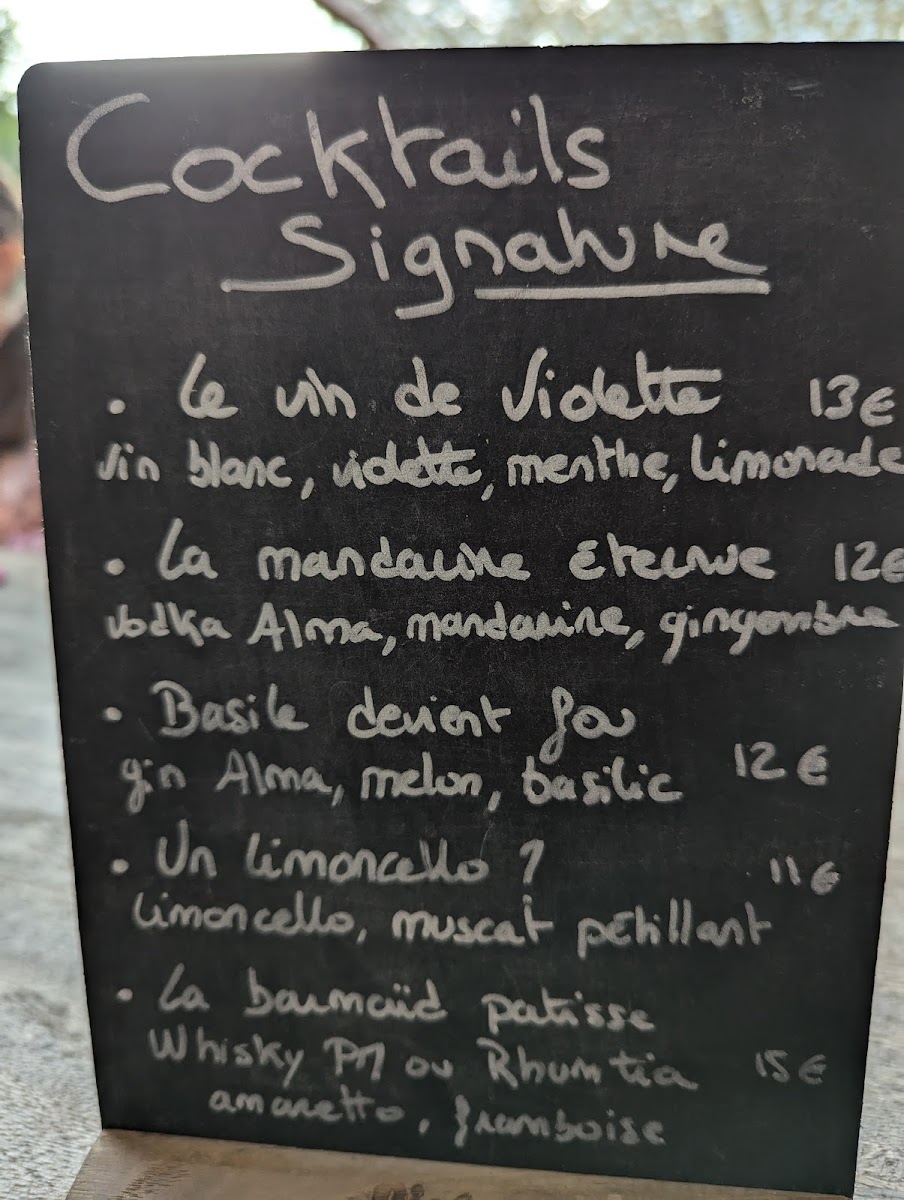 Cocktails
Signature
• Le vin de Violette 13€
vin blanc, violette, menthe, limonade
• La mandarine Éternue 12€
vodka Alma, mandarine, gingembre
• Basile devient fou
gin Alma, melon, basilic 12€
• Un limoncello ? 11€
limoncello, muscat pétillant
• La barmaïd patisse
Whisky PM ou Rhum tia 15€
amaretto, framboise